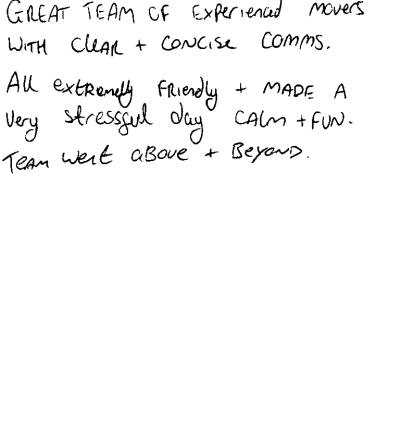 GREAT TEAM OF Experienced movers
WITH CLEAR + CONCISE COMMS.
All extremely FRIENdly + MADE A
Very stressful day CALM + FUN.
TEAM went aBove + BEYOND.